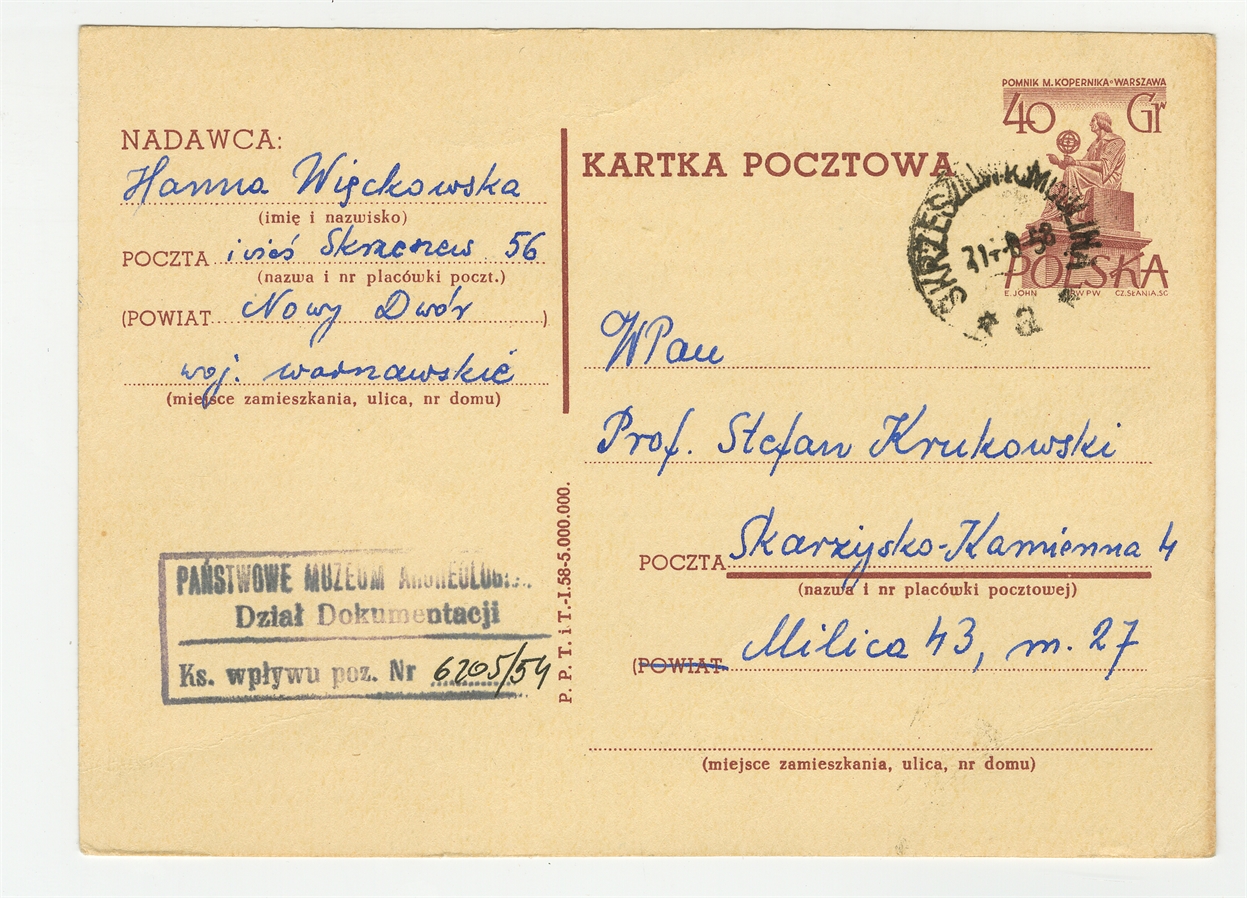 NADAWCA:
Hanna Więckowska
(imię i nazwisko)
POCZTA i wieś Skrzeszew 56
(nazwa i nr placówki poczt.)
(POWIAT Nowy Dwór )
woj. warszawskie
(miejsce zamieszkania, ulica, nr domu)
PAŃSTWOWE MUZEUM
Dział Dokumentacji
Ks. wpływu poz. Nr 6205/54
P. P. T. i T.-I.58-5.000.000.
POMNIK M. KOPERNIKA WARSZAWA
40 Gr
POLSKA
E. JOHN PWPW CZ.SŁANIA.SC
KARTKA POCZTOWA
-8 58
a
WPan
Prof. Stefan Krukowski
POCZTA Skarżysko-Kamienna 4
(nazwa i nr placówki pocztowej)
(POWIAT Milica 43, m. 27
(miejsce zamieszkania, ulica, nr domu)